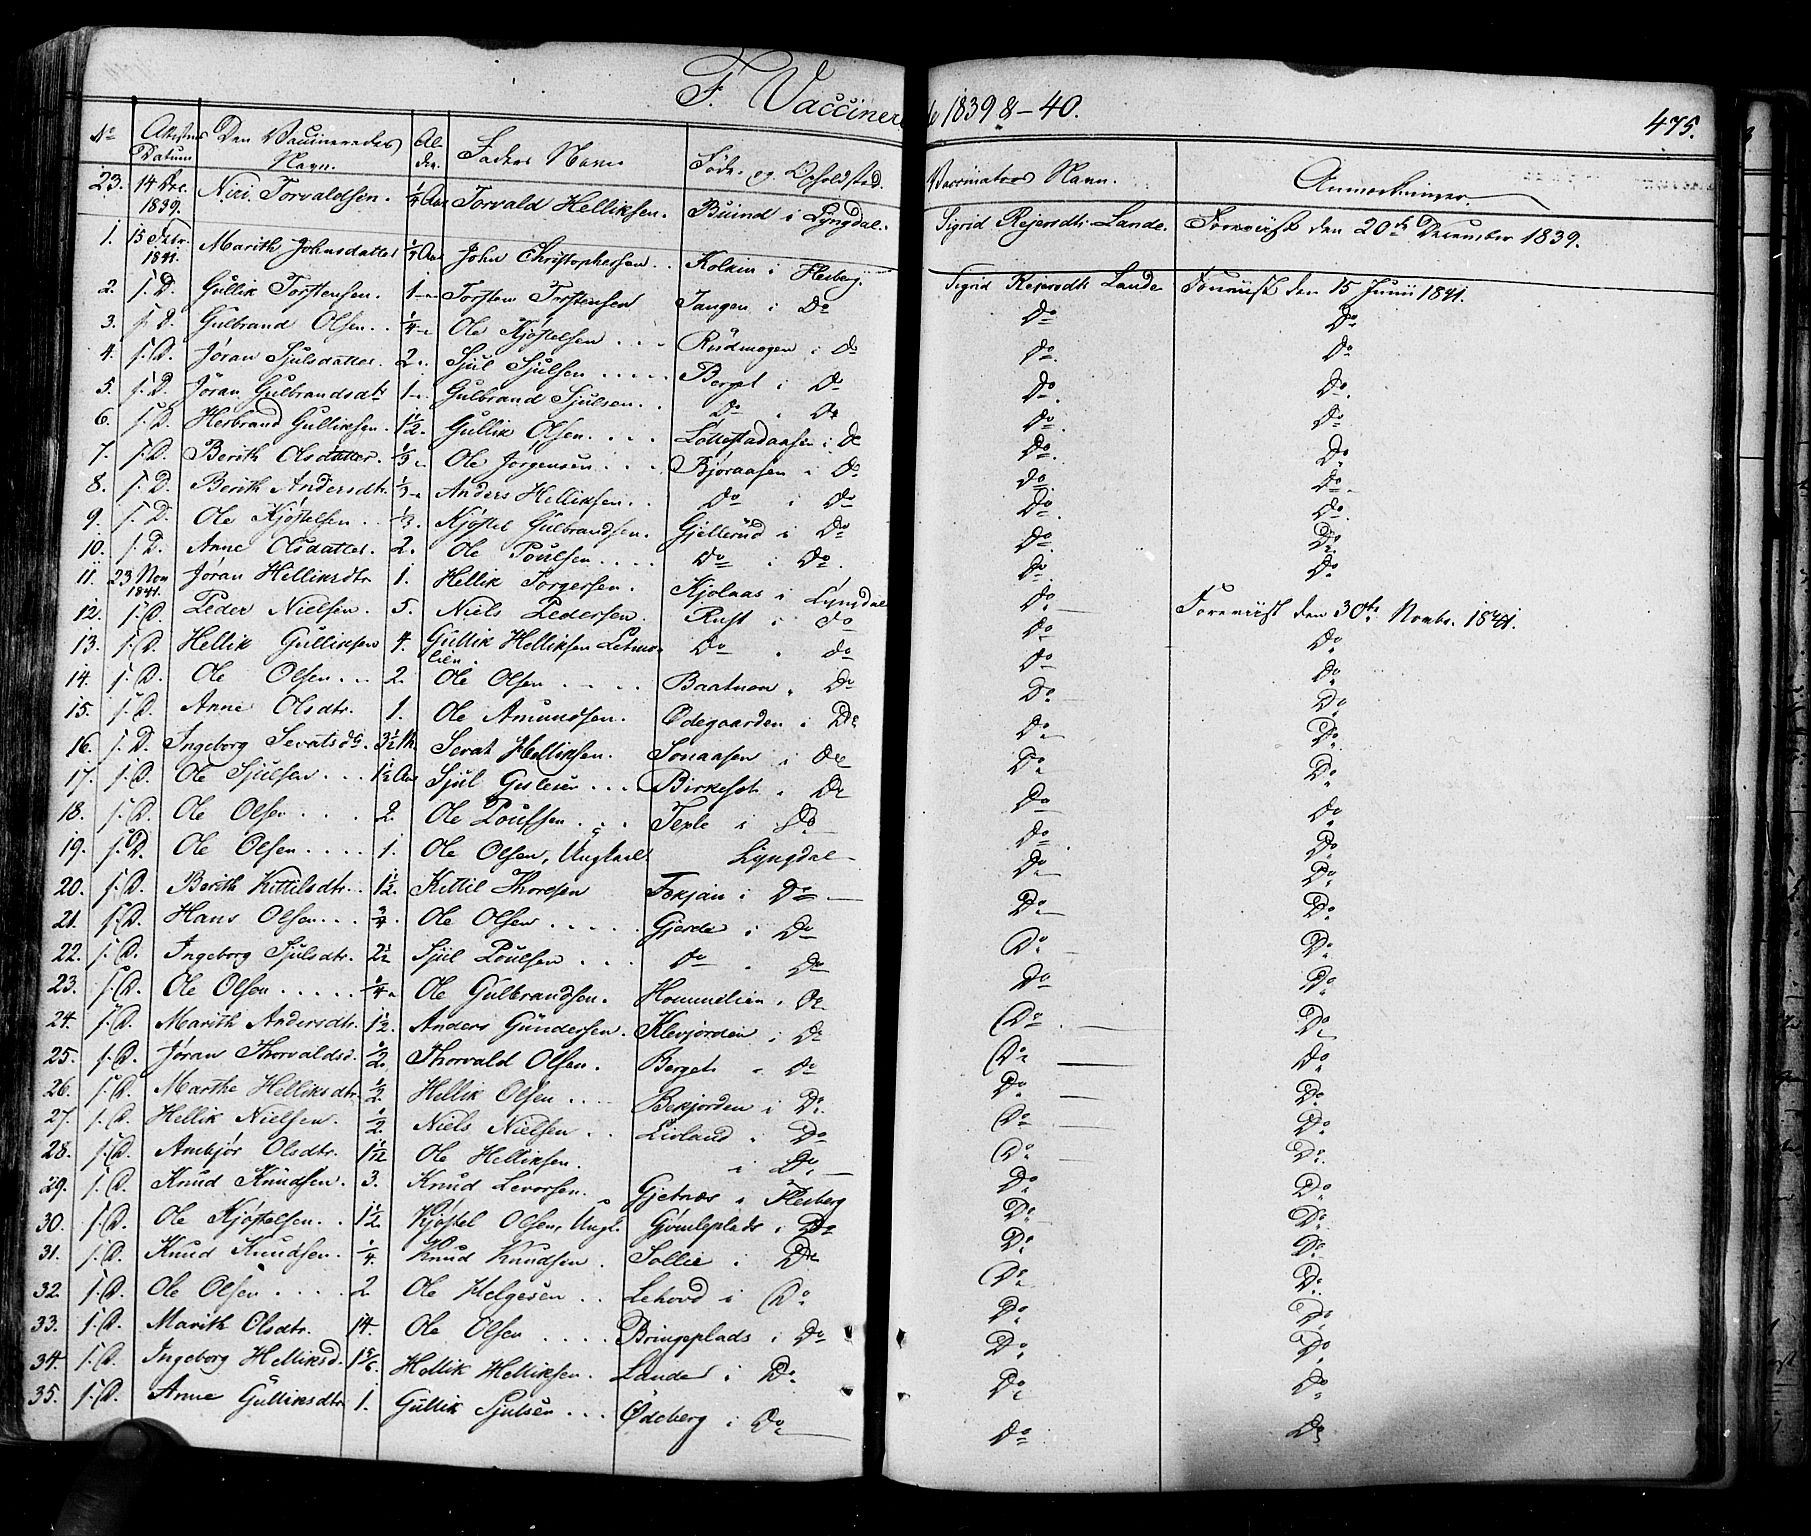 F. Vaccinerede 1839 & -40.
475.
No Attestens Datum Den Vaccineredes Navn. Alder. Faders Navn Føde- og Opholdsted. Vaccinators Navn. Anmærkninger
23. 14 Dec. 1839. Niri Torvaldsen. 1/4 Aar Torvald Helliksen. Buind i Lyngdal. Sigrid Rejersdtr Lande. Foreviist den 20de December 1839.
1. 15 1841. Marith Johnsdatter 1/3 Aar John Christophersen.. Kolkin i Flesberg. Sigrid Rejersdtr Lande Foreviist den 15 Junii 1841.
2. s. D. Gullik Torstensen. 1 Torsten Torstensen Tangen i Do Do Do
3. s. D. Gulbrand Olsen.. 1/4 Ole Kjøstelsen... Ruudmogen i Do Do. Do
4. s. D. Jøran Sjulsdatter 2. Sjul Sjulsen..... Berget i Do Do. Do.
5. s. D. Jöran Gulbrandsdtr 1 Gulbrand Sjulsen.. Do i Do Do. Do.
6. s. D. Herbrand Gulliksen. 1 1/2. Gullik Olsen.... Löttestadaasen i Do Do. Do
7. s. D. Berith Olsdatter. 1/3 Ole Jörgensen... Björaasen i Do Do. Do.
8. s. D. Berith Andersdtr. 1/3 Anders Helliksen.. Do i Do Do. Do.
9. s. D. Ole Kjøstelsen.. 1/3. Kjøstel Gulbrandsen. Gjellerud i Do Do. Do
10. s. D. Anne Olsdatter. 2. Ole Poulsen.... Do i Do. Do. Do
11. 23 Nov 1841. Jøran Helliksdtr 1. Hellik Torgersen. Kjolaas i Lyngdal Do Foreviist den 30te Novbr. 1841.
12. s. D. Peder Nielsen. 5. Niels Pedersen. Rust i do Do Do
13. s. D. Hellik Gulliksen 4. Gullik Helliksen Letmo-
lien. Do . do Do Do
14. s. D. Ole Olsen... 2. Ole Olsen.... Baatnon . Do Do Do
15. s. D. Anne Olsdtr. 1. Ole Amundsen. Ödegaarden i Do Do Do
16. s. D. Ingeborg Sevatsdtr. 3 1/2 M. Sevat Helliksen. Sonaasen i Do Do Do
17. s. D. Ole Sjulsen... 1 1/2 Aar Sjul Gislesen... Birkeset i Do Do Do
18. s. D. Ole Olsen.... 2. Ole Poulsen.... Teple i Do Do Do
19. s. D. Ole Olsen.... 1. Ole Olsen, Ungkarl Lyngdal Do Do
20. s. D. Berith Kittilsdtr.. 1 1/2. Kittil Thoresen Fekjan i Do Do Do
21. s. D. Hans Olsen... 3/4. Ole Olsen..... Gjerde i Do Do Do
22. s. D. Ingeborg Sjulsdtr. 2 1/2 Sjul Poulsen... Do . Do Do Do
23. s. D. Ole Olsen..... 1/4 Ole Gulbrandsen. Hommelien i Do Do Do
24. s. D. Marith Andersdtr. 1 1/2. Anders Gundersen. Klevjorden i Do Do Do
25. s. D. Jøran Thorvaldsd. 1/2. Thorvald Olsen. Berget . Do Do Do
26. s. D. Marthe Helliksdtr. 1/2 Hellik Olsen.... Bekjorden i Do. Do Do
27. s. D. Hellik Nielsen. 1/2. Niels Nielsen.. Livland i Do Do Do
28. s. D. Ambjör Olsdtr. 1 1/12 Ole Helliksen. i Do Do Do
29. s. D. Knud Knudsen. 3. Knud Levorsen. Gjetnæs i Flesberg Do Do
30. s. D. Ole Kjøstelsen.. 1 1/2. Kjøstel Olsen, Ungk. Gjömleplads i Do Do Do
31. s. D. Knud Knudsen. 1/4 Knud Knudsen. Sollie i Do Do Do
32. s. D. Ole Olsen.... 2 Ole Helgesen.. Lehovd i Do Do Do
33. s. D. Marith Olsdtr. 14. Ole Olsen.... Bringeplads i Do Do Do
34. s. D. Ingeborg Helliksd. 1 5/6. Hellik Helliksen. Lande i Do Do Do
35. s. D. Anne Gulliksdtr 1. Gullik Sjulsen... Ødeberg i Do Do Do